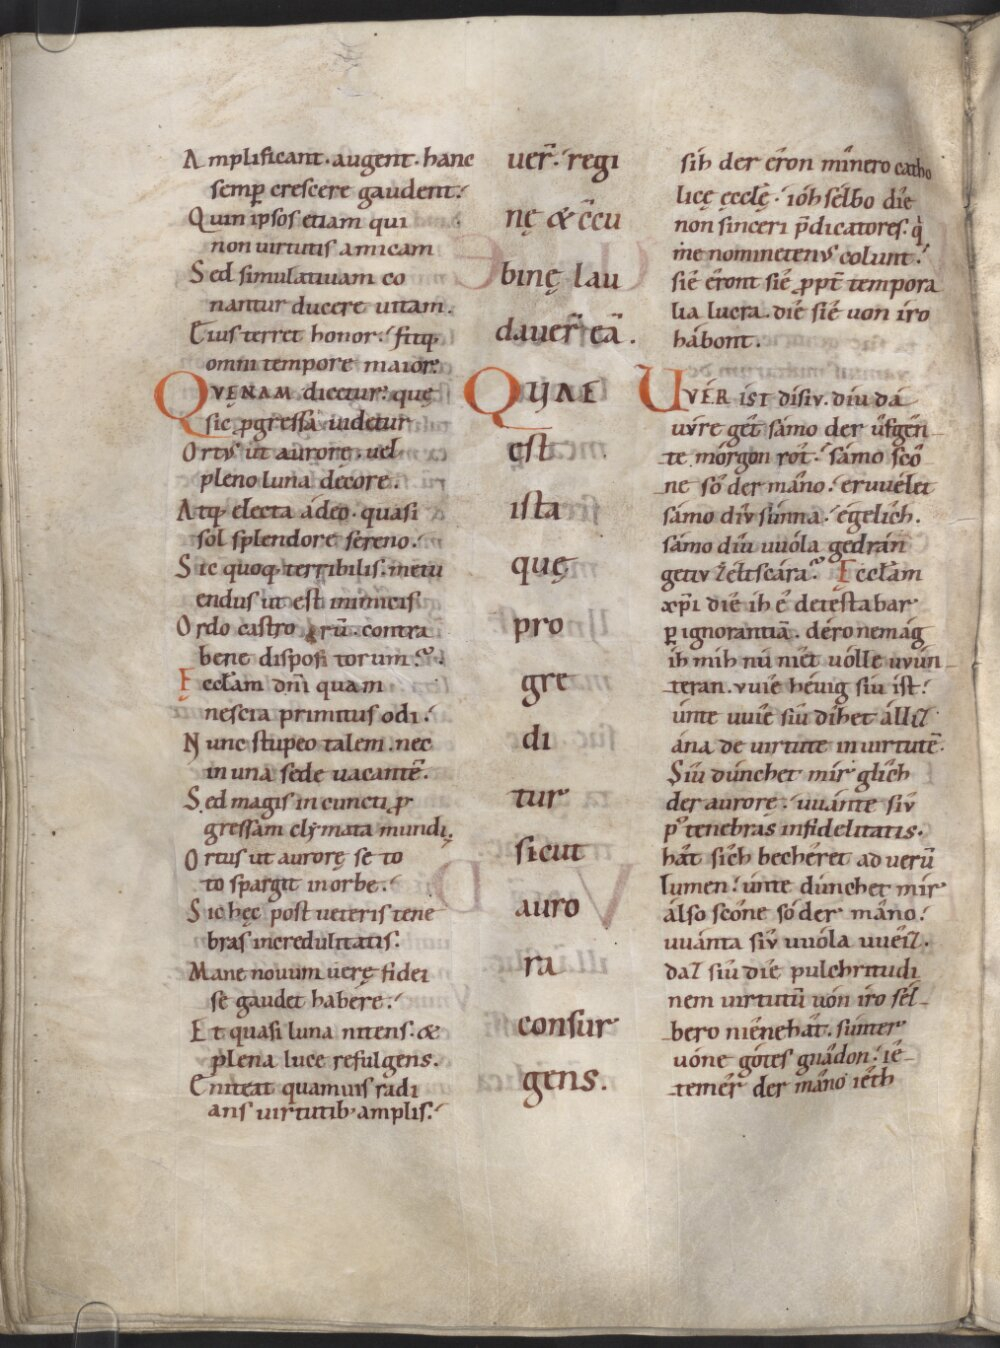 Amplificant. augent. hanc
semꝑ crescere gaudent.
Quin ipsos etiam qui
non uirtutis amicam
Sed simulatiuam co
nantur ducere uitam.
Eius terret honor. fitq;
omni tempore maior.
QVENAM dicetur. quę
sic ꝓgressa uidetur
Ortus ut aurorę. uel
pleno luna decore.
Atq; electa adeo. quasi
sol splendore sereno.
Sic quoq; terribilis. metu
endus ut est inimicis
Ordo castro rū. contra
bene dispositorum.
Eccl̄am dn̄i quam
nescia primitus odi.
Nunc stupeo talem. nec
in una sede uacantē.
Sed magis in cuncti ꝓ
gressam clymata mundi.
Ortus ut aurorę se to
to spargit in orbe.
Sic hęc post ueteris tene
bras incredulitatis.
Mane nouum uerę fidei
se gaudet habére.
Et quasi luna nitens. &
plena luce refulgens.
Eniteat quamuis radi
ans uirtutib; amplis.
uer̄. regi
nę & c̄cu
binę lau
dauer̄ eā.
QUAE
est
ista
quę
pro
gre
di
tur
sicut
auro
ra
consur
gens.
sih der êron mînero catho
licę ęccl̄ę. ióh sélbo dîe
non sinceri p̄dicatores. q̇
me nominetenus colunt.
sîe êront sîe ꝓpt̄ tempora
lia lucra. dîe sîe uon íro
hábont.
UVÉR íst dísiv. dív dá
uvre gêt sámo der ûfgên
te mórgon rôt. sámo scô
ne sô der mâno. eruuélet
sámo dív súnna. égelích.
sámo díu uuóla gedrán
getiv zéltscára. Eccl̄am
xp̄i dîe ih ê detestabar
ꝑ ignorantiā. dér o nemág
ih mih nû nîet uólle uvûn
teran. vuîe hévig síu íst.
únte uuîe síu díhet állîz
ána de uirtute in uirtutē.
Síu dúnchet mír glîch
der aurorę. uuánte sív
pꝰ tenebras infidelitatis.
hât sích bechéret ad uerū
lumen. únte dúnchet mír
álso scône sô der mâno.
uuánta sív uuóla uuêiz.
daz síu dîe pulchritudi
nem uirtutū uón íro sél
bero nîenehât. súnter
uóne gótes gnâdon. îe
temêr der mâno îeth